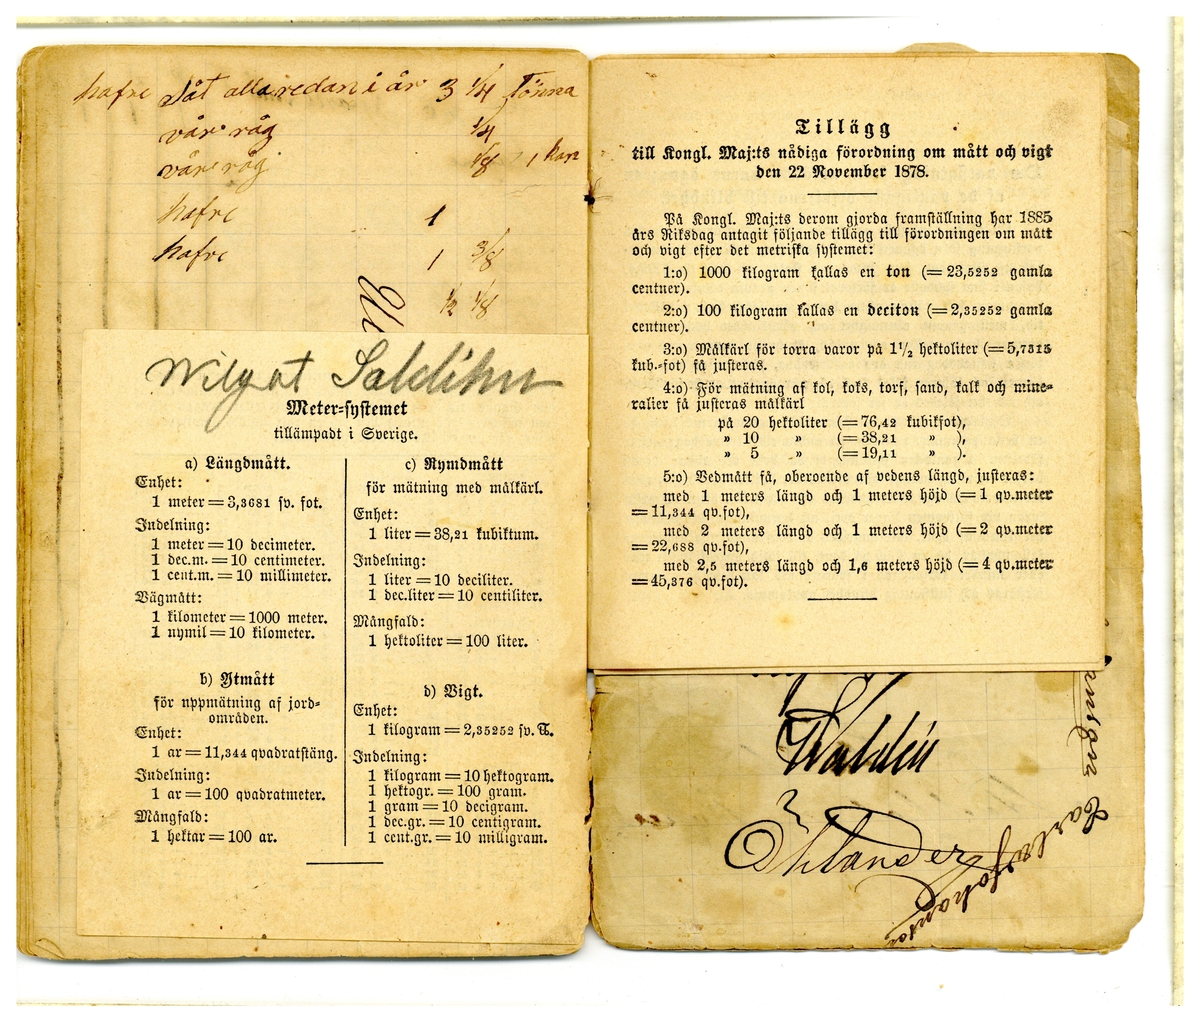 hafre Såt alla redan i år 3 1/4 Tönna
vår råg 1/4
vår råg 1/8 1 kan
hafre 1
hafre 1 3/8
1/2 1/8
Meter-systemet
tillämpadt i Sverige.
a) Längdmått.
Enhet:
1 meter = 3,3681 sv. fot.
Indelning:
1 meter = 10 decimeter.
1 dec.m. = 10 centimeter.
1 cent.m. = 10 millimeter.
Vägmått:
1 kilometer = 1000 meter.
1 nymil = 10 kilometer.
b) Ytmått
för uppmätning af jord-
områden.
Enhet:
1 ar = 11,344 qvadratstäng.
Indelning:
1 ar = 100 qvadratmeter.
Mångfald:
1 hektar = 100 ar.
c) Rymdmått
för mätning med målkärl.
Enhet:
1 liter = 38,21 kubiktum.
Indelning:
1 liter = 10 deciliter.
1 dec.liter = 10 centiliter.
Mångfald:
1 hektoliter = 100 liter.
d) Vigt.
Enhet:
1 kilogram = 2,35252 sv. ℔.
Indelning:
1 kilogram = 10 hektogram.
1 hektogr. = 100 gram.
1 gram = 10 decigram.
1 dec.gr. = 10 centigram.
1 cent.gr. = 10 milligram.
Tillägg
till Kongl. Maj:ts nådiga förordning om mått och vigt
den 22 November 1878.
På Kongl. Maj:ts derom gjorda framställning har 1885
års Riksdag antagit följande tillägg till förordningen om mått
och vigt efter det metriska systemet:
1:o) 1000 kilogram kallas en ton (= 23,5252 gamla
centner).
2:o) 100 kilogram kallas en deciton (= 2,35252 gamla
centner).
3:o) Målkärl för torra varor på 1 1/2 hektoliter (= 5,7315
kub.-fot) få justeras.
4:o) För mätning af kol, koks, torf, sand, kalk och mine-
ralier få justeras målkärl
på 20 hektoliter (= 76,42 kubikfot),
» 10 » (= 38,21 » ),
» 5 » (= 19,11 » ).
5:o) Vedmått få, oberoende af vedens längd, justeras:
med 1 meters längd och 1 meters höjd (= 1 qv.meter
= 11,344 qv.fot),
med 2 meters längd och 1 meters höjd (= 2 qv.meter
= 22,688 qv.fot),
med 2,5 meters längd och 1,6 meters höjd (= 4 qv.meter
= 45,376 qv.fot).
Carl